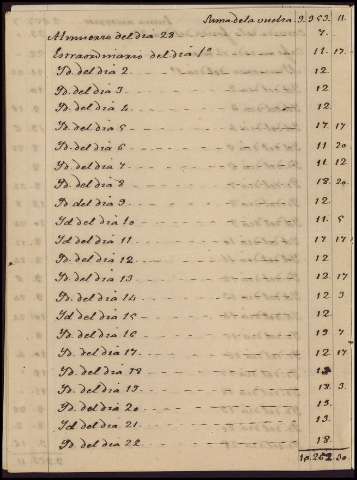 Suma de la vuelta 9.953. 11.
Almuerzo del dia 28 7.
Estraordinario del dia 1º 11. 17.
Yd. del dia 2 12.
Yd. del dia 3 12.
Yd. del dia 4 12.
Yd. del dia 5 17. 17
Yd. del dia 6 11. 20
Yd. del dia 7 11. 12
Yd. del dia 8 18. 20.
Yd. del dia 9 12.
Yd. del dia 10 11. 5
Yd. del dia 11 17. 17
Yd. del dia 12 12.
Yd. del dia 13 12. 17
Yd. del dia 14 12. 3
Yd. del dia 15 12.
Yd. del dia 16 7
Yd. del dia 17 12. 17
Yd. del dia 18
Yd. del dia 19 3.
Yd. del dia 20
Yd. del dia 21
Yd. del dia 22 18.